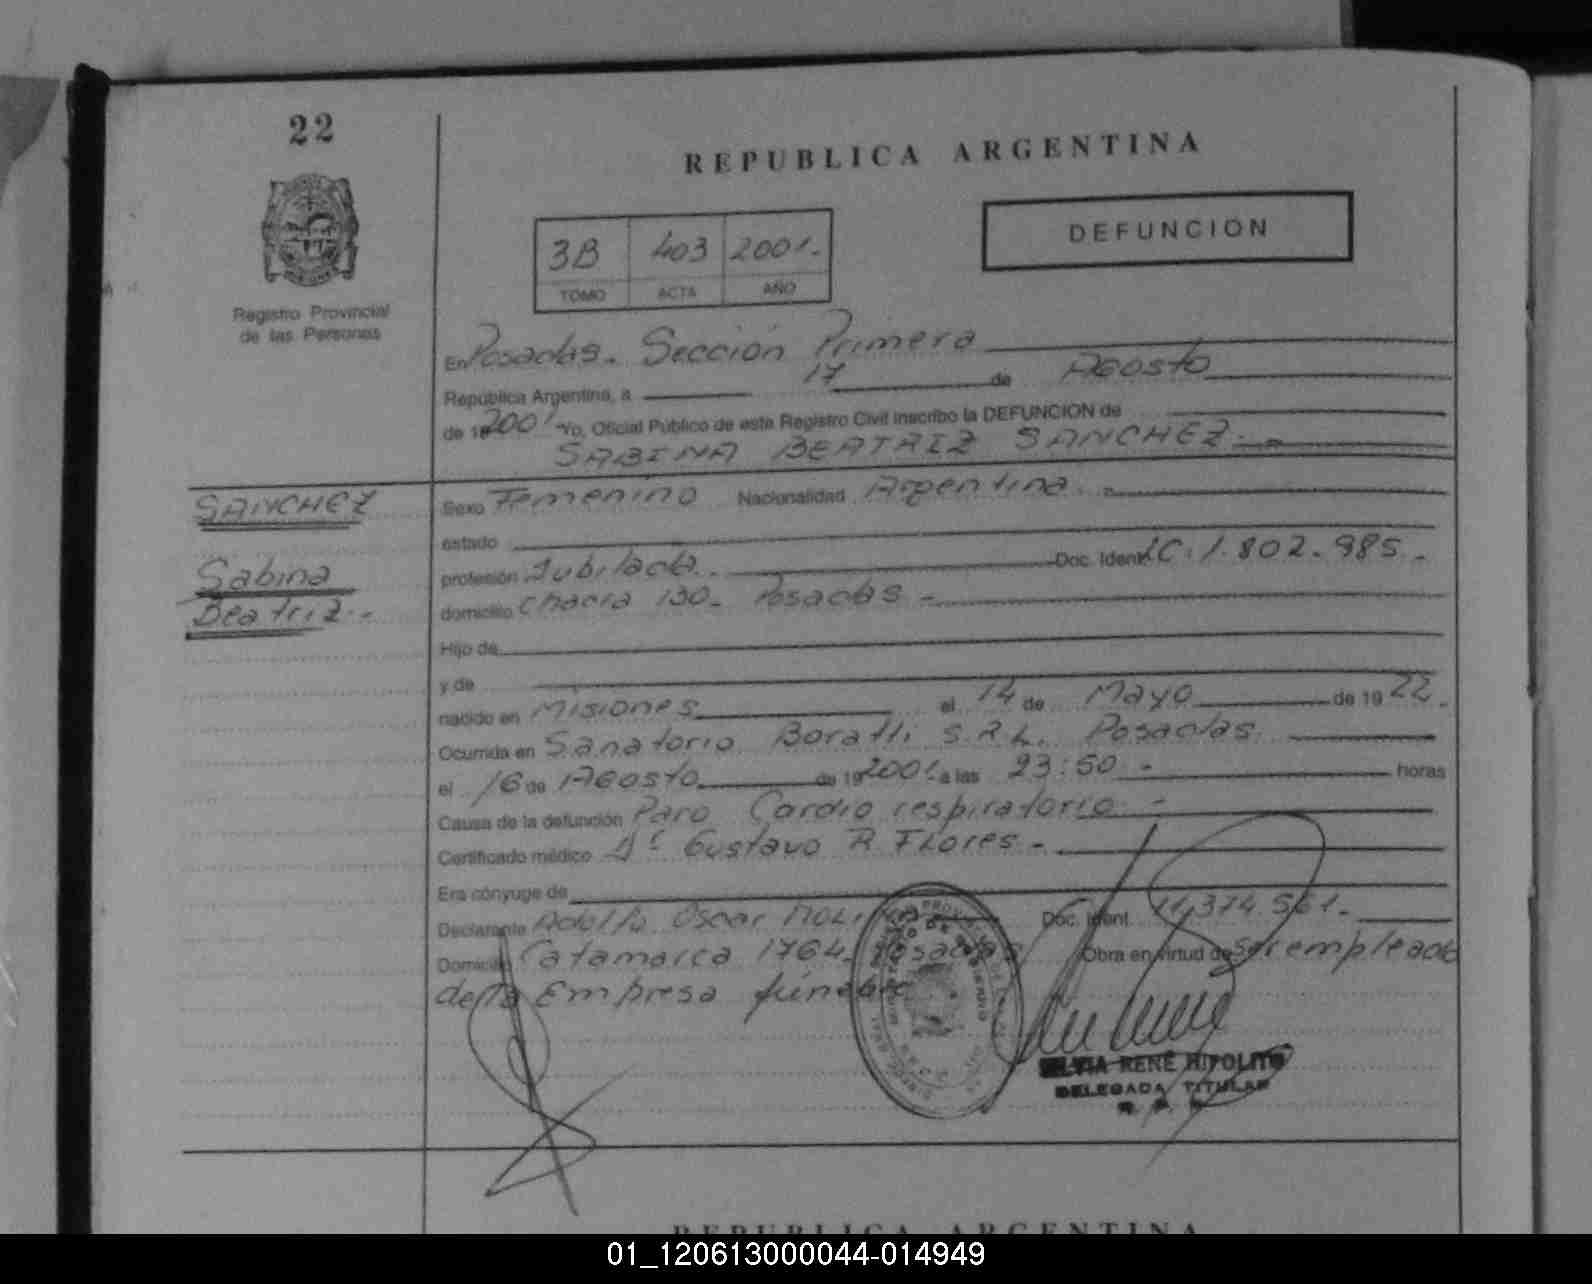 22
REPUBLICA ARGENTINA
Registro Provincial
de las Personas
3B 403 2001.-
TOMO ACTA AÑO
DEFUNCION
En Posadas. Sección Primera
República Argentina, a 17 de Agosto
de 19 2001 Yo, Oficial Público de este Registro Civil inscribo la DEFUNCION de
SABINA BEATRIZ SANCHEZ.-
SANCHEZ
Sabina
Beatriz.-
Sexo Femenino Nacionalidad Argentina.-
estado
profesión Jubilada. Doc. Ident. LC. 1.802.985.-
domicilio Chacra 130. Posadas.-
Hijo de
y de
nacido en Misiones el 14 de Mayo de 19 22.
Ocurrida en Sanatorio Boratti S.R.L. Posadas.
el 16 de Agosto de 19 2001. a las 23:50.- horas
Causa de la defunción Paro Cardio respiratorio.-
Certificado médico Dr. Gustavo R Flores.-
Era cónyuge de
Declarante Adolfo Oscar Doc. Ident. 11.374.561.-
Domicilio Catamarca 1764. Posadas Obra en virtud de ser empleado
de la Empresa fúnebre
RENÉ HIPOLITO
DELEGADA TITULAR
REPUBLICA ARGENTINA
01_120613000044-014949